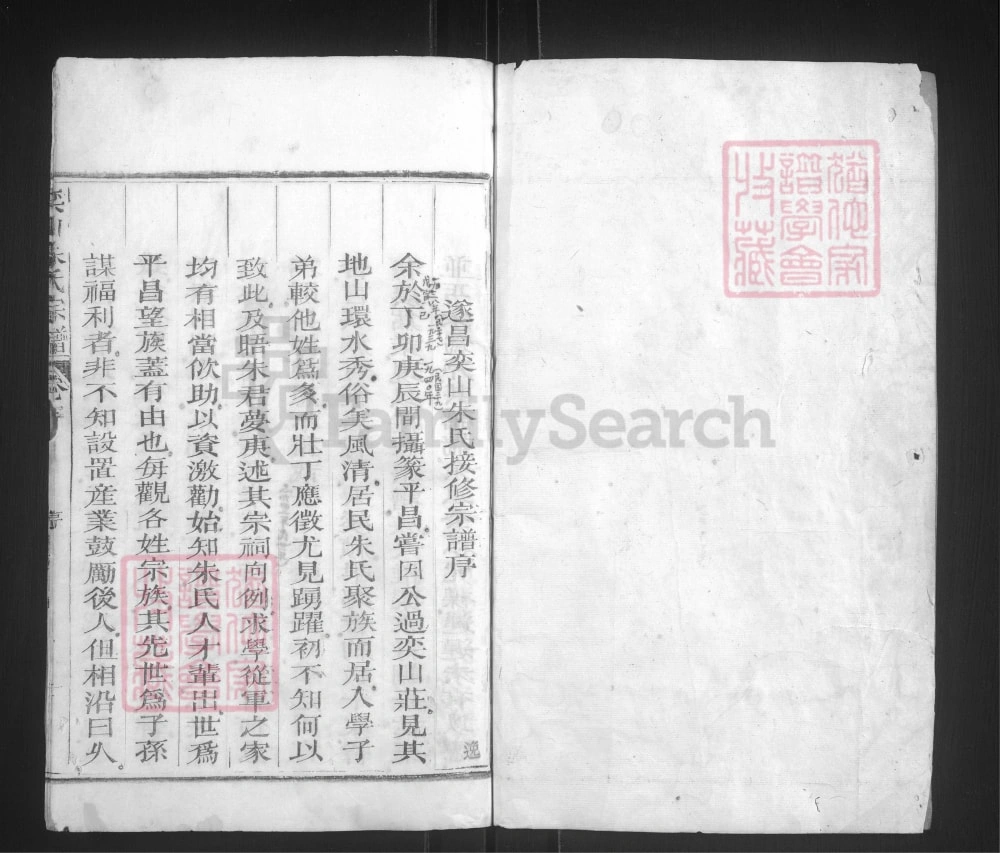 遂昌奕山朱氏接修宗譜序
余於丁卯庚辰間攝篆平昌嘗因公過奕山莊見其
地山環水秀俗美風清居民朱氏聚族而居入學子
弟較他姓爲多而壯丁應徵尤見踴躍初不知何以
致此及晤朱君夢庚述其宗祠向例求學從軍之家
均有相當佽助以資激勸始知朱氏人才輩出世爲
平昌望族蓋有由也每觀各姓宗族其先世爲子孫
謀福利者非不知設置産業鼓勵後人但相沿日久
逸
奕山朱氏宗譜
卷
序
序
譜學會
藏
FamilySearch